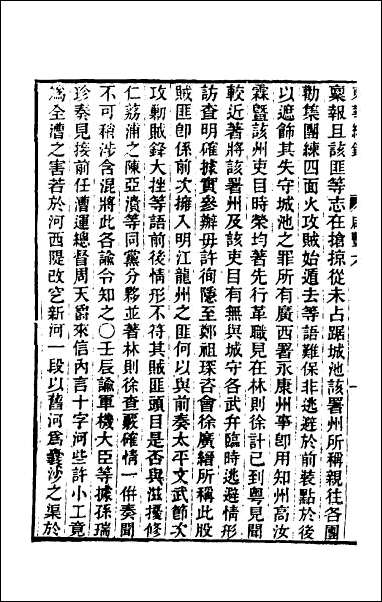 稟報且該匪等志在搶掠從未占踞城池該署州所稱親往各團
勸集團練四面火攻賊始遁去等語難保非逃避於前裝點於後
以遮飾其失守城池之罪所有廣西署永康州事卽用知州高汝
霖曁該州吏目時榮均著先行革職見在林則徐計已到粵見聞
較近著將該署州及該吏目有無與城守各武弁臨時逃避情形
訪查明確據實參辦毋許徇隱至鄭祖琛咨會徐廣縉所稱此股
賊匪卽係前次擁入明江龍州之匪何以與前奏太平文武節次
攻勦賊鋒大挫等語前後情形不符其賊匪頭目是否與滋擾修
仁荔浦之陳亞潰等同黨分夥並著林則徐查覈確情一併奏聞
不可稍涉含混將此各諭令知之〇壬辰諭軍機大臣等據孫瑞
珍奏見接前任漕運總督周天爵來信內言十字河些許小工竟
爲全漕之害若於河西隄改空新河一段以舊河爲囊沙之渠於